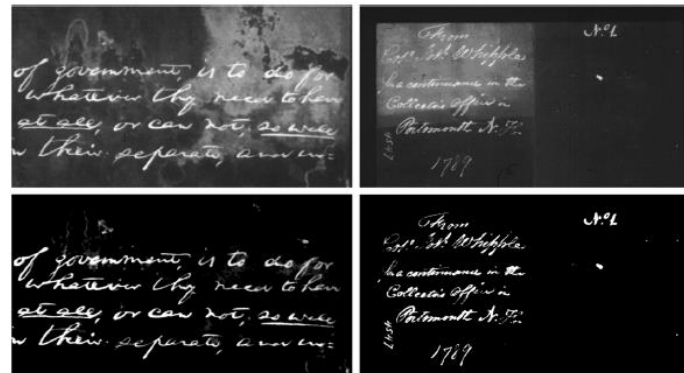 of government, is to do for
whatever they need to hav
at all, or can not, so well
their separate, and in=
From
Jos. Whipple
for a continuance in the
Collector's Office in
Portsmouth N. H.
1789
No. 1
of government, is to do for
whatever they need to hav
at all, or can not, so well
their separate, and in=
From
Jos. Whipple
for a continuance in the
Collector's Office in
Portsmouth N. H.
1789
No. 1